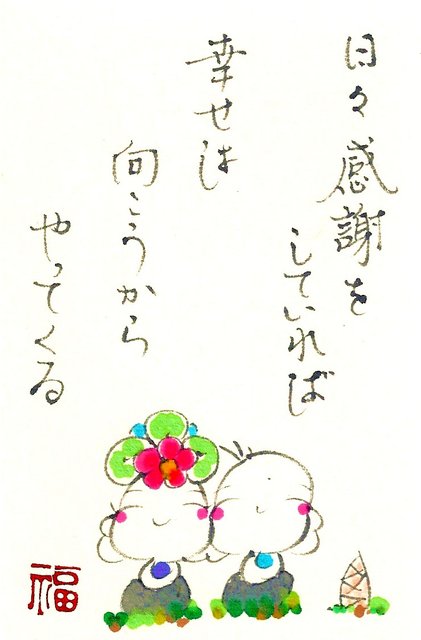 日々感謝を
していれば
幸せは
向こうから
やってくる
福